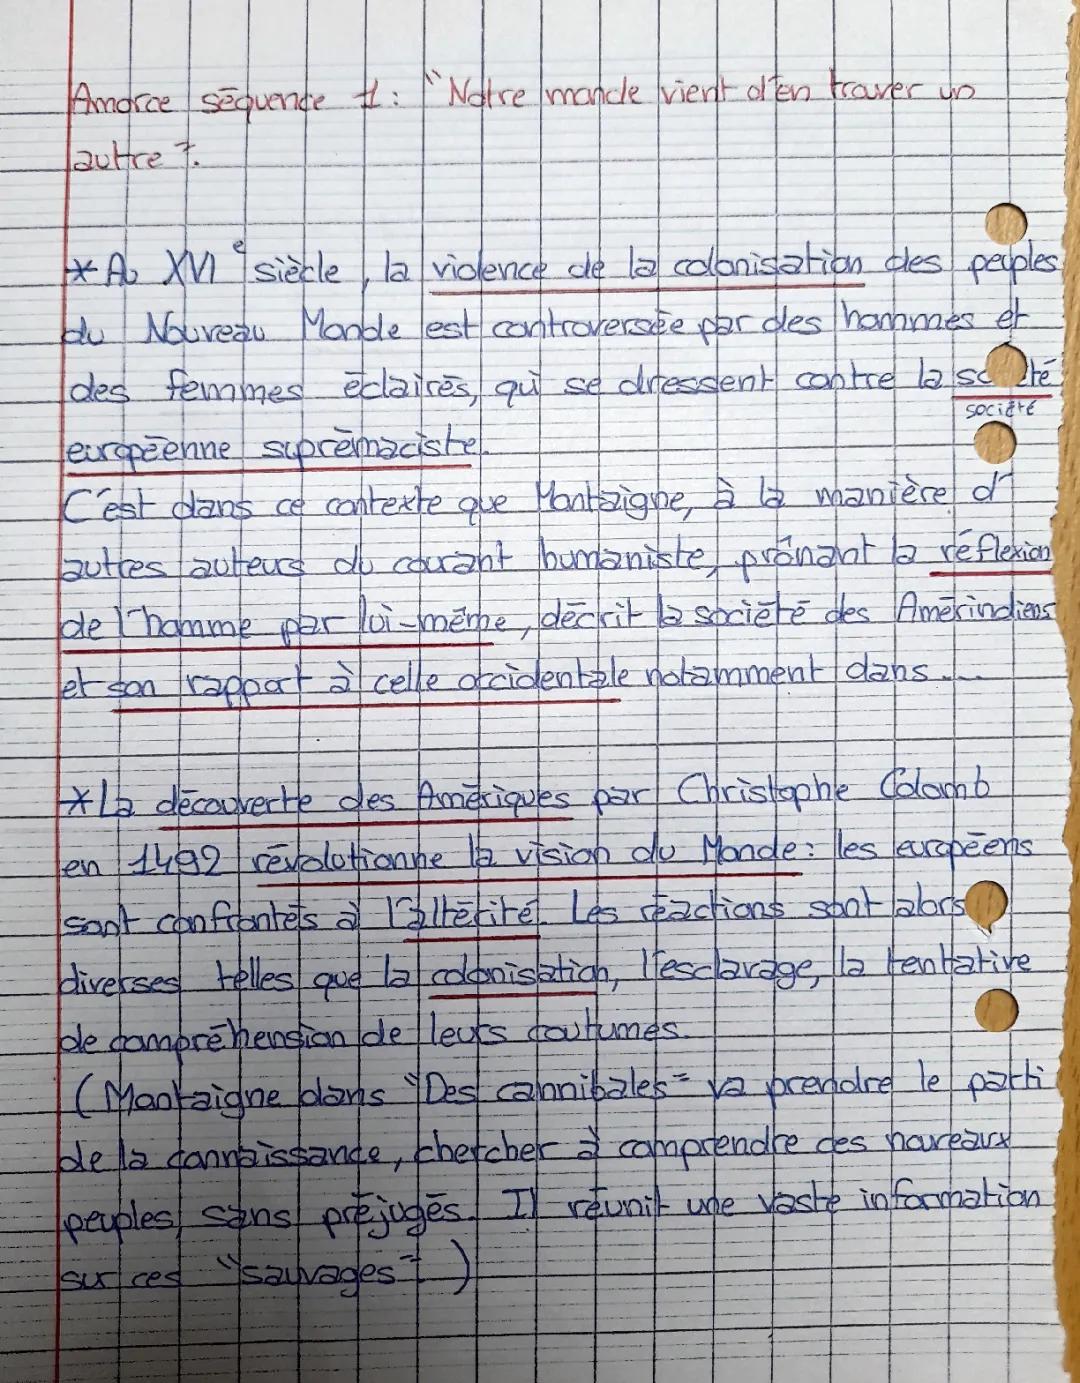 Amorce séquence 1: "Notre monde vient d'en trouver un
autre".
* Au XVIe siècle, la violence de la colonisation des peuples
du Nouveau Monde est controversée par des hommes et
des femmes éclairés, qui se dressent contre la société
société
européenne suprémaciste.
C'est dans ce contexte que Montaigne, à la manière d'
autres auteurs du courant humaniste, prônant la réflexion
de l'homme par lui-même, décrit la société des Amérindiens
et son rapport à celle occidentale notamment dans....
* La découverte des Amériques par Christophe Colomb
en 1492 révolutionne la vision du Monde: les européens
sont confrontés à l'altérité. Les réactions sont alors
diverses telles que la colonisation, l'esclavage, la tentative
de compréhension de leurs coutumes.
(Montaigne dans "Des cannibales" va prendre le parti
de la connaissance, chercher à comprendre ces nouveaux
peuples, sans préjugés. Il réunit une vaste information
sur ces "sauvages".)